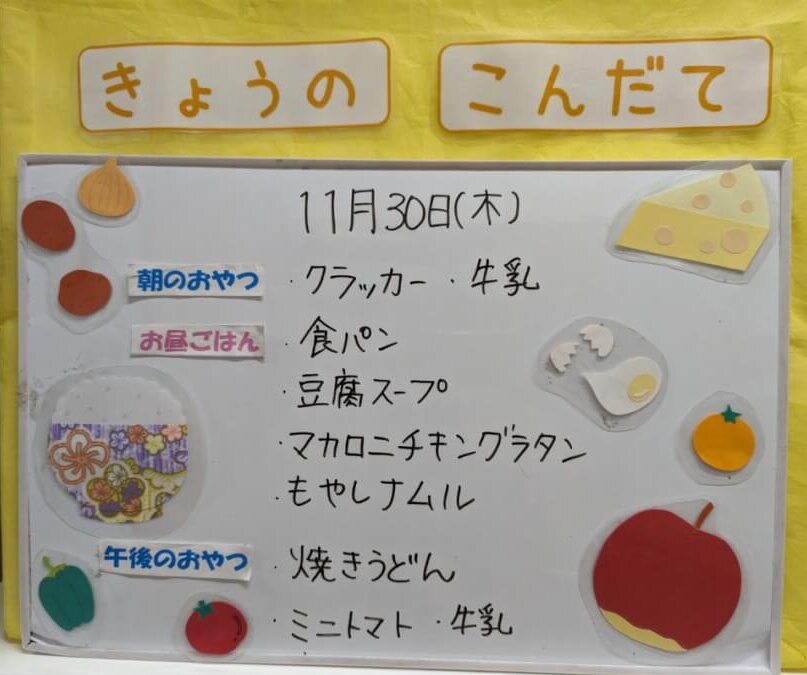 きょうの こんだて
11月30日(木)
朝のおやつ ・クラッカー ・牛乳
お昼ごはん ・食パン
・豆腐スープ
・マカロニチキングラタン
・もやしナムル
午後のおやつ ・焼きうどん
・ミニトマト ・牛乳